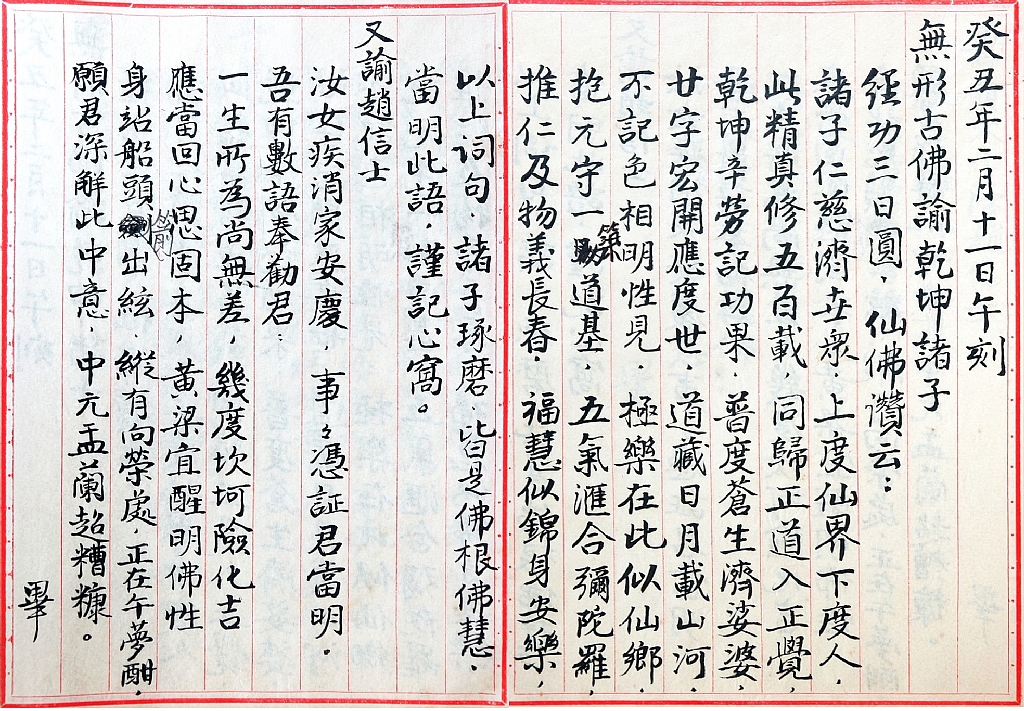 癸丑年二月十一日午刻
無形古佛諭乾坤諸子
經功三日圓，仙佛讚云：
諸子仁慈濟世眾，上度仙界下度人，
此精真修五百載，同歸正道入正覺，
乾坤辛勞記功果，普度蒼生濟娑婆，
廿字宏開應度世，道藏日月載山河，
不記色相明性見，極樂在此似仙鄉，
抱元守一築道基，五氣滙合彌陀羅，
推仁及物義長春，福慧似錦身安樂，
以上词句，諸子琢磨，皆是佛根佛慧，
當明此語，謹記心窩。
又諭趙信士
汝女疾消家安慶，事々憑証君當明，
吾有數語奉勸君：
一生所為尚無差，幾度坎坷險化吉
應當回心思固本，黃梁宜醒明佛性
身站船頭箭出絃，縱有向榮處，正在午夢酣，
願君深解此中意，中元盂蘭起糟糠。
畢